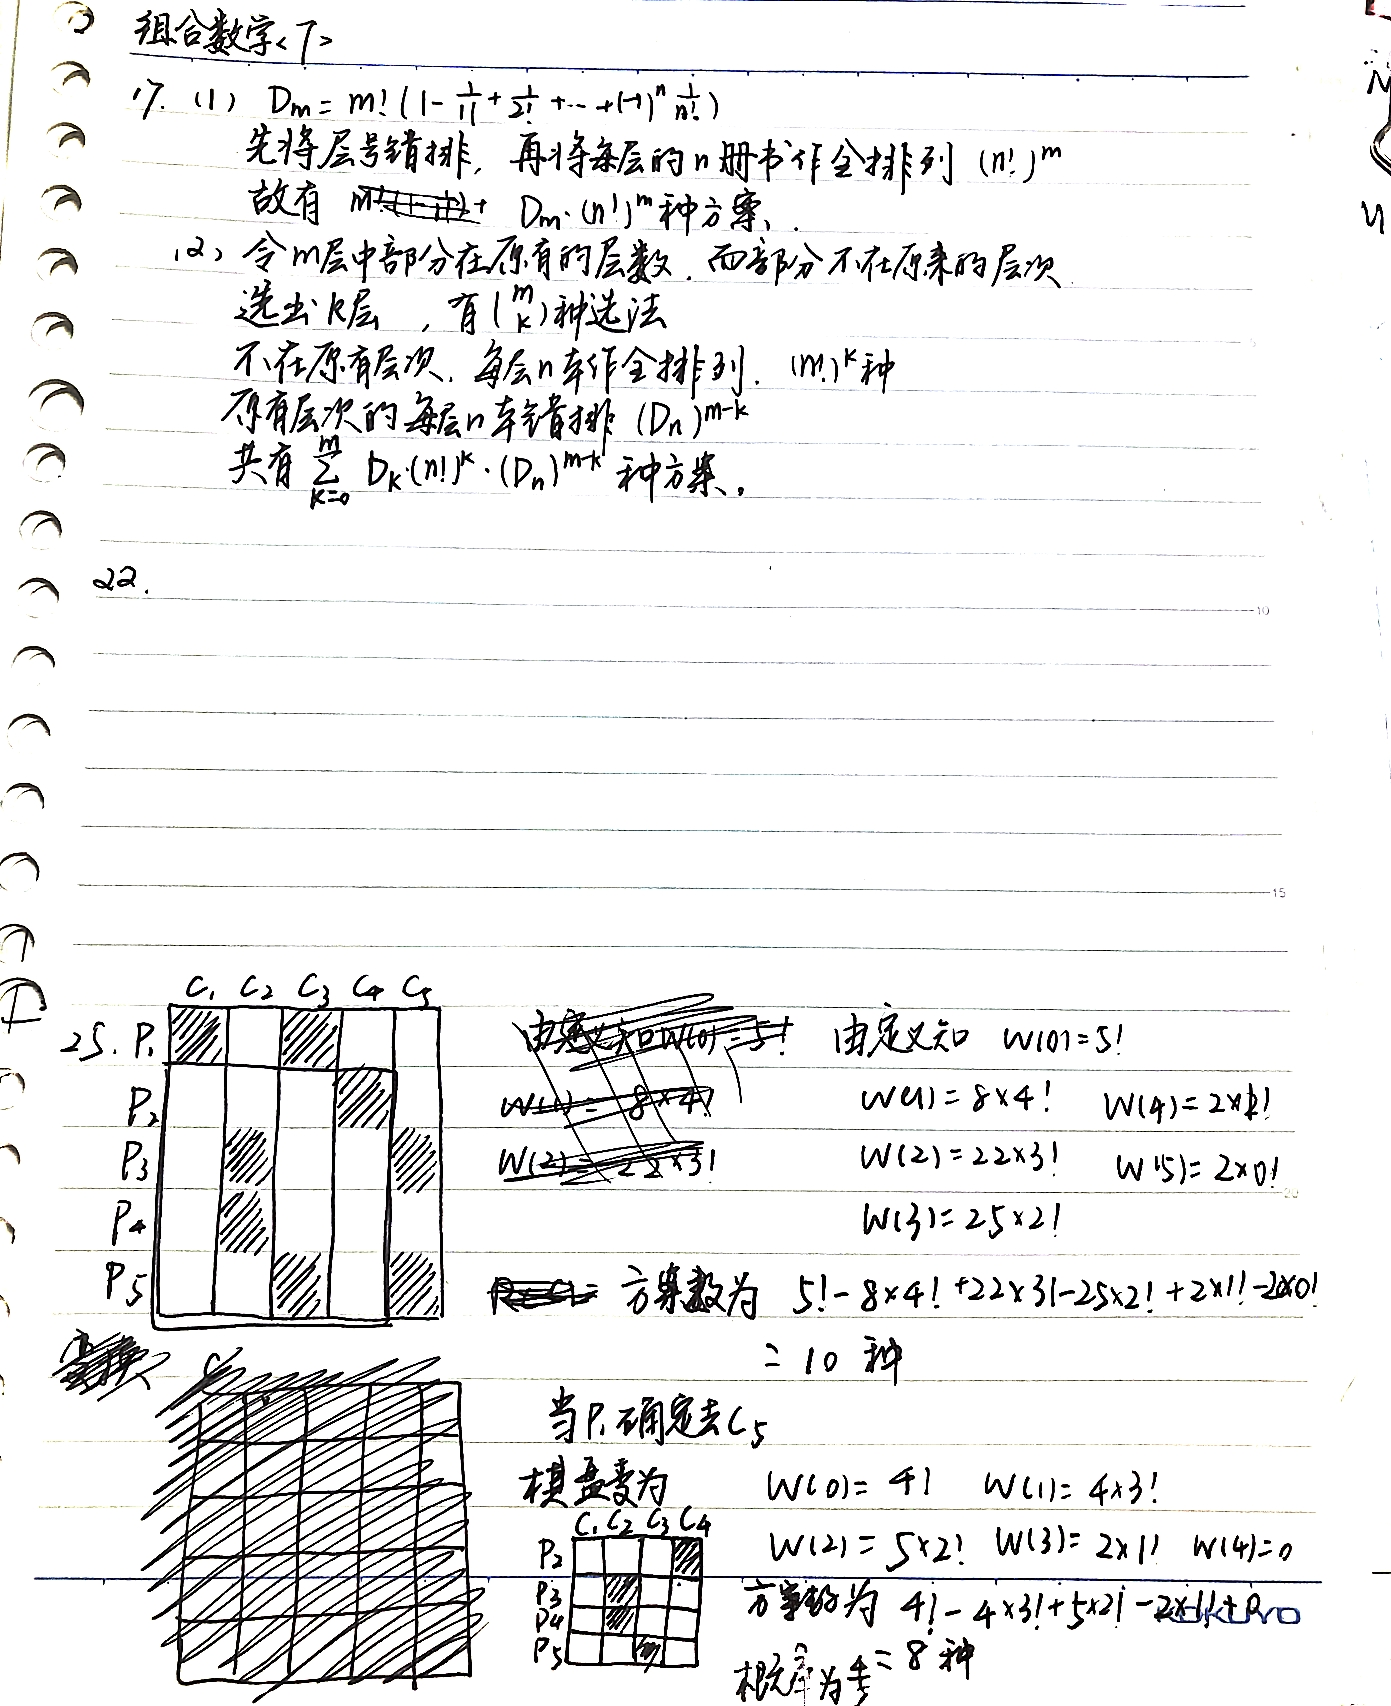 组合数学<7>
17. (1) Dm = m! (1 - 1/1! + 1/2! + ... + (-1)^n 1/n!)
先将层号错排, 再将每层的n册书作全排列 (n!)^m
故有 Dm·(n!)^m 种方案.
(2) 令m层中部分在原有的层数. 而部分不在原来的层次
选出k层, 有(m k)种选法
不在原有层次. 每层n本作全排列. (m!)^k种
原有层次的每层n本错排 (Dn)^m-k
共有 m∑k=0 Dk·(n!)^k·(Dn)^m-k 种方案.
22.
10
15
C1 C2 C3 C4 C5
25. P1
P2
P3
P4
P5
由定义知W(0)=5!
W(1) = 8×4!
W(2) = 22×3!
由定义知 W(0)=5!
W(1)=8×4! W(4)=2×1!
W(2)=22×3! W(5)=2×0!
20
W(3)=25×2!
方案数为 5!-8×4!+22×3!-25×2!+2×1!-2×0!
=10 种
当P1确定去C5
棋盘变为
C1 C2 C3 C4
P2
P3
P4
P5
W(0)=4! W(1)=4×3!
W(2)=5×2! W(3)=2×1! W(4)=0
方案数为 4!-4×3!+5×2!-2×1!+0
KOKUYO
=8 种
概率为4/5